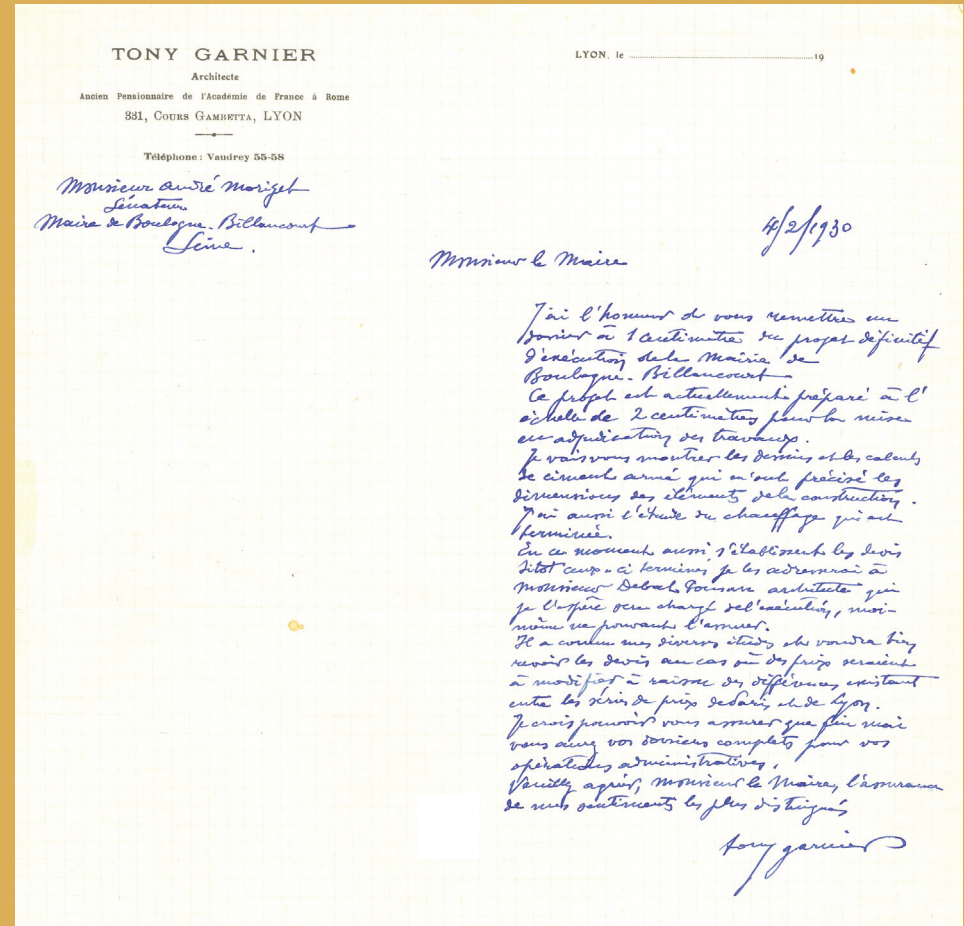 TONY GARNIER
Architecte
Ancien Pensionnaire de l'Académie de France à Rome
331, COURS GAMBETTA, LYON
Téléphone : Vaudrey 55-58
LYON, le 19
Monsieur André Morizet
Sénateur
Maire de Boulogne-Billancourt
Seine.
4/2/1930
Monsieur le Maire
J'ai l'honneur de vous remettre un
dossier à 1 centimètre du projet définitif
d'exécution de la Mairie de
Boulogne-Billancourt
Ce projet est actuellement préparé à l'
échelle de 2 centimètres pour la mise
en adjudication des travaux.
Je vais vous montrer les dessins et les calculs
de ciment armé qui m'ont précisé les
dimensions des éléments de la construction.
J'ai aussi l'étude du chauffage qui est
terminée.
En ce moment aussi s'établissent les devis
sitôt ceux-ci terminés je les adresserai à
Monsieur Debat Ponsan architecte qui
je l'espère sera chargé de l'exécution, moi-
même ne pouvant l'assurer.
Il a connu mes diverses études et voudra bien
revoir les devis au cas où des prix seraient
à modifier à raison des différences existant
entre les séries de prix de Paris et de Lyon.
Je crois pouvoir vous assurer que fin mai
vous aurez vos dossiers complets pour vos
opérations administratives.
Veuillez agréer, Monsieur le Maire, l'assurance
de mes sentiments les plus distingués
tony garnier